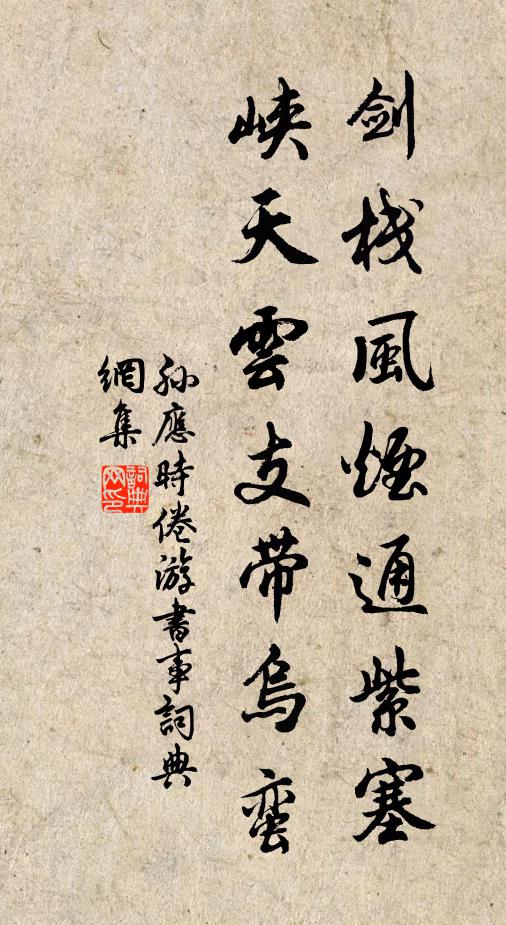 剑栈風煙通紫塞
峡天雲支带烏蛮
孙應時倦游書事詞典
網集
詞典網印